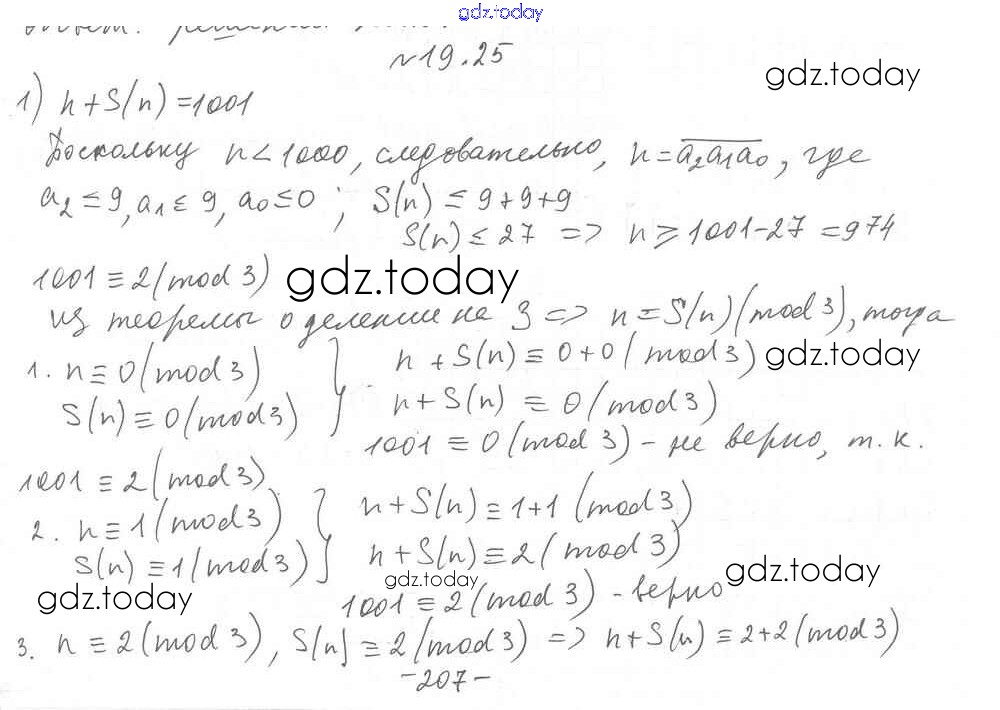 gdz.today
ответ: решений
№19.25
gdz.today
1) n+S(n)=1001
Поскольку n<1000, следовательно, n=a₂a₁a₀, где
a₂≤9, a₁≤9, a₀≤0; S(n)≤9+9+9
S(n)≤27 => n≥1001-27=974
1001≡2(mod 3) gdz.today
из теоремы о делении на 3 => n≡S(n)(mod 3), тогда
1. n≡0(mod 3) } n+S(n)≡0+0(mod 3) gdz.today
S(n)≡0(mod 3) n+S(n)≡0(mod 3)
1001≡0(mod 3) - не верно, т.к.
1001≡2(mod 3)
2. n≡1(mod 3) } n+S(n)≡1+1(mod 3)
S(n)≡1(mod 3) n+S(n)≡2(mod 3)
gdz.today gdz.today gdz.today
1001≡2(mod 3) - верно
3. n≡2(mod 3), S(n)≡2(mod 3) => n+S(n)≡2+2(mod 3)
-207-